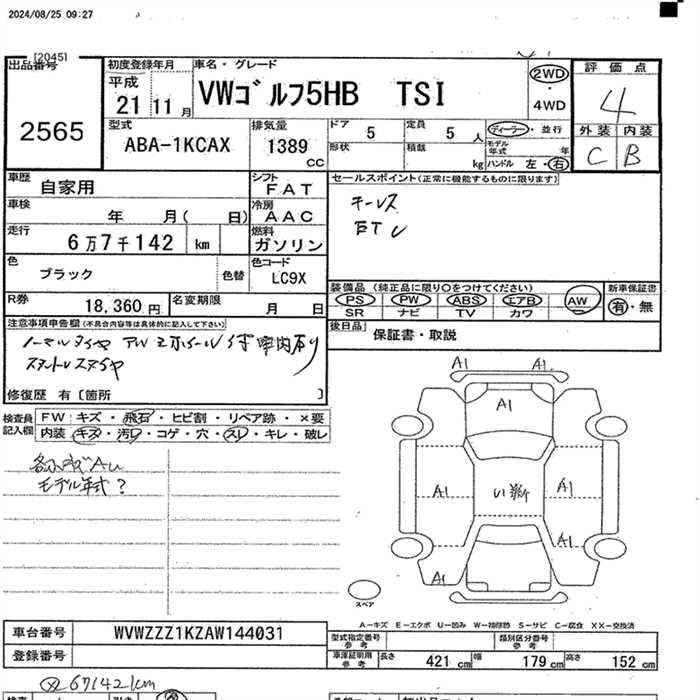 2024/08/25 09:27
[2045]
出品番号
2565
初度登録年月
平成
21 11 月
車名・グレード
VWゴルフ5HB TSI
2WD
4WD
評価点
4
外装 内装
C B
型式
ABA-1KCAX
排気量
1389
CC
ドア
5
定員
5 人
形状
積載
kg
ディーラー・並行
モデル年式 年
ハンドル 左・右
車歴
自家用
シフト
FAT
車検
年 月( 日)
冷房
AAC
走行
6万7千142 km
燃料
ガソリン
色
ブラック
色替
色コード
LC9X
R券
18,360 円
名変期限
月 日
セールスポイント(正常に機能するものに限ります)
キーレス
ETC
装備品 (純正品に限り○をつけてください)
PS PW ABS エアB AW
SR ナビ TV カワ
新車保証書
有・無
後日品
保証書・取説
注意事項申告欄(不具合内容等は具体的に記入して下さい)
修復歴 有〔箇所 〕
検査員
記入欄
FW: キズ・飛石・ヒビ割・リペア跡・×要
内装 キズ・汚レ・コゲ・穴・スレ・キレ・破レ
モデル年式?
A1 A1
A1
A1 A1
A1
A1
スペア
A-キズ E-エクボ U-凹み W-補修跡 S-サビ C-腐食 XX-交換済
車台番号
WVWZZZ1KZAW144031
登録番号
型式指定番号
参考
類別区分番号
参考
車庫証明用
参考
長さ 421 cm 幅 179 cm 高さ 152 cm
67142km